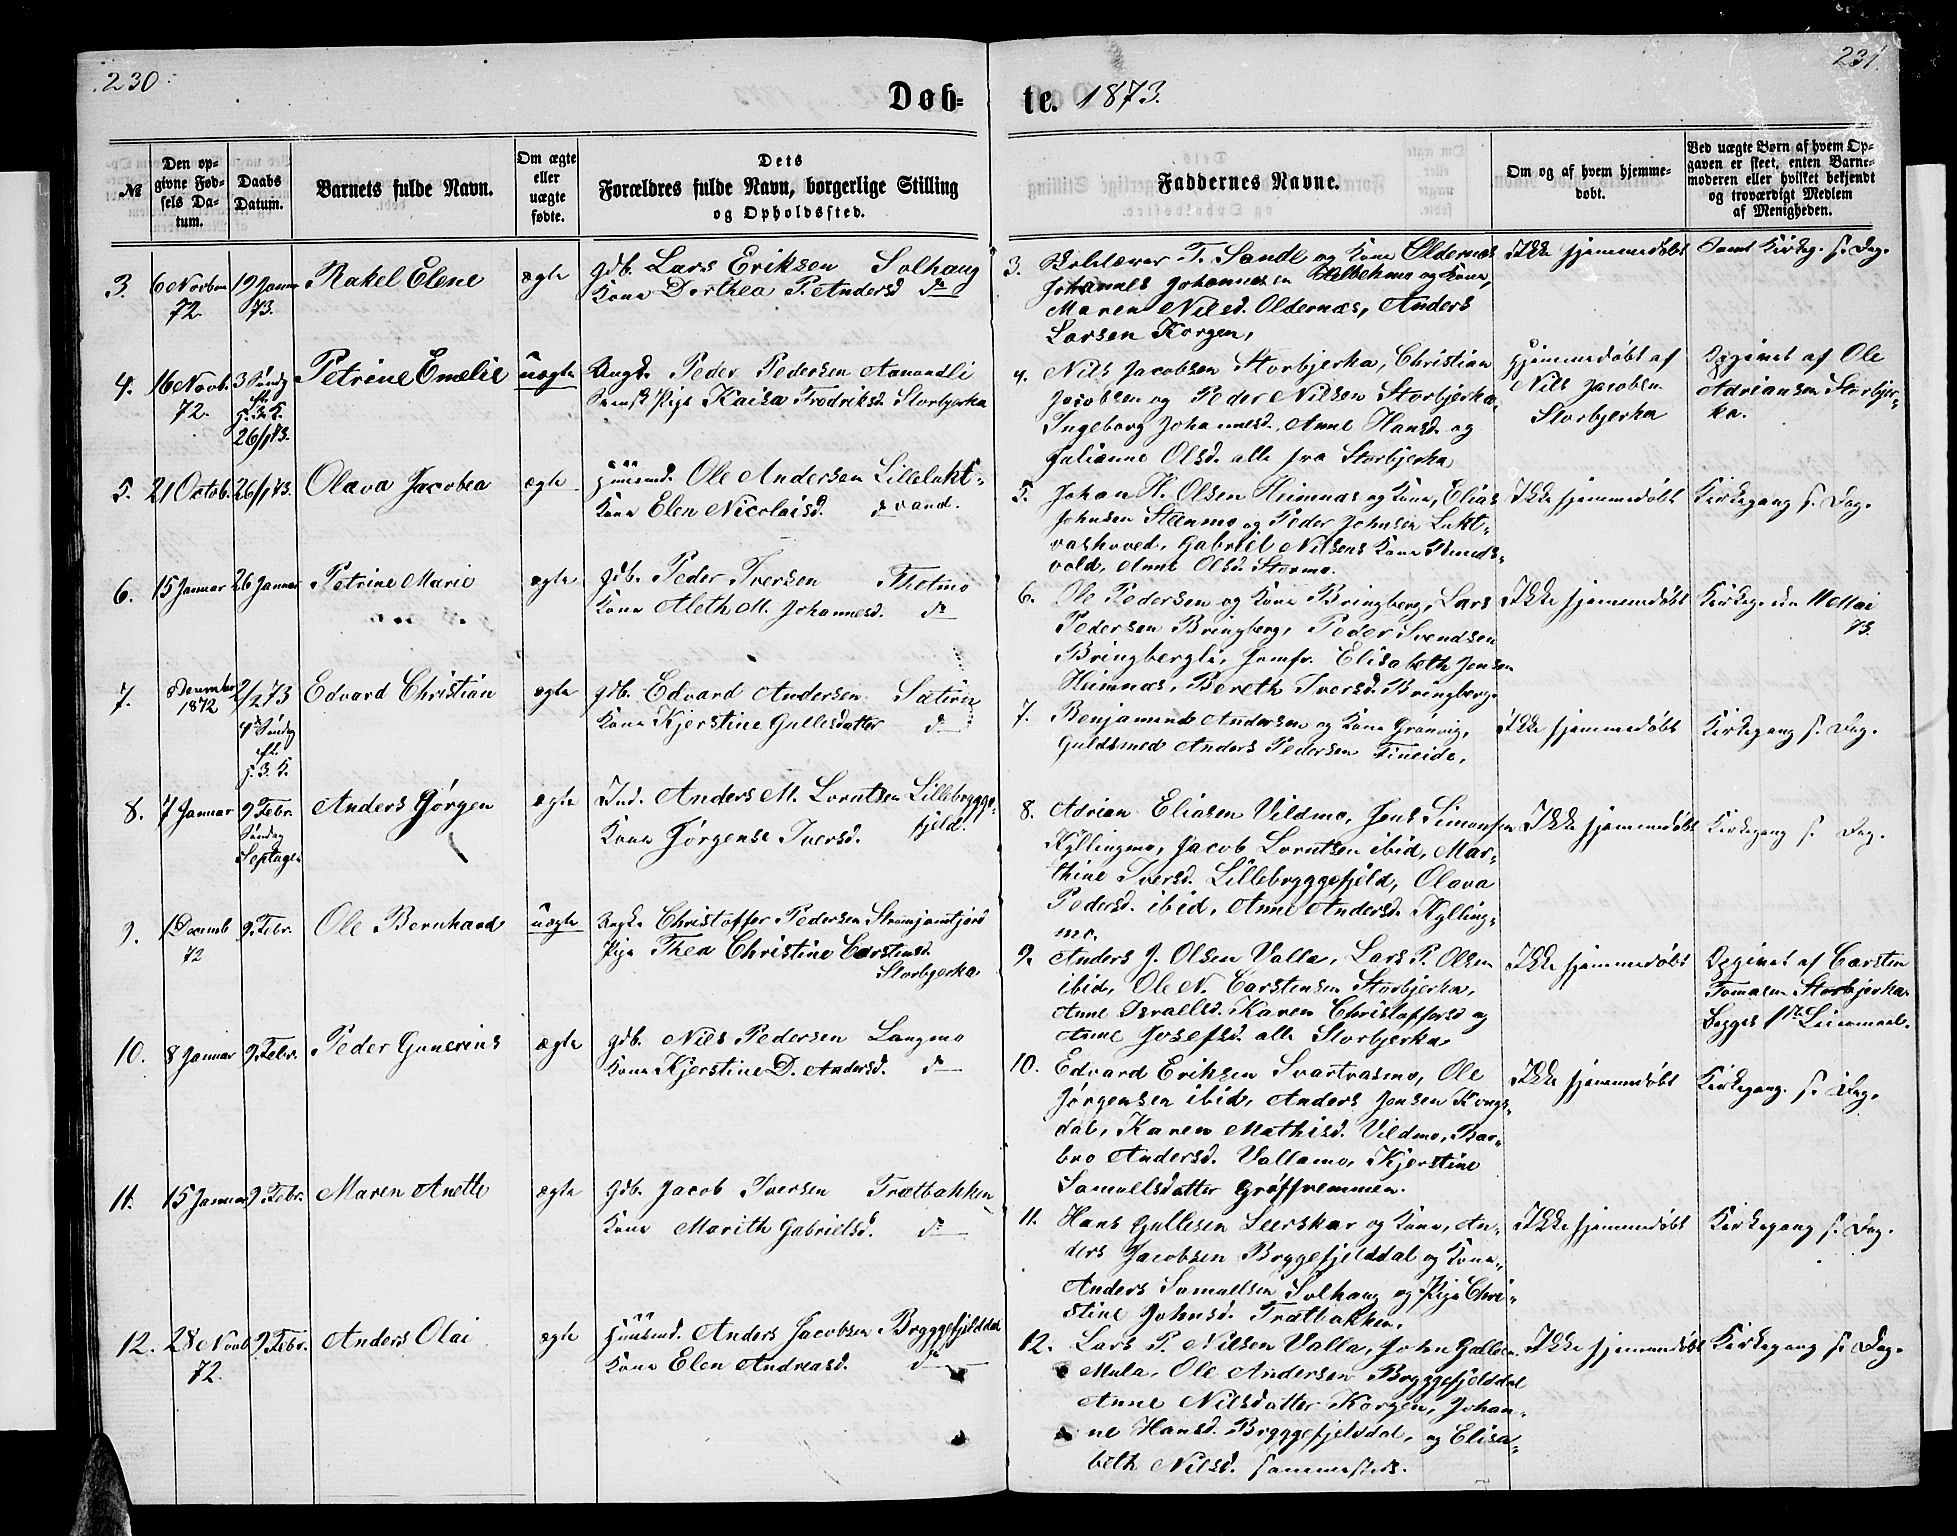 230.
231.
Døb-
te. 1873.
№
Den op-
givne Fød-
sels Da-
tum.
Daabs
Datum.
Barnets fulde Navn.
Om ægte
eller
uægte
fødte.
Dets
Forældres fulde Navn, borgerlige Stilling
og Opholdssted.
Faddernes Navne.
Om og af hvem hjemme-
døbt.
Ved uægte Børn af hvem Op-
gaven er skeet, enten Barne-
moderen eller hvilket bekjendt
og troværdigt Medlem
af Menigheden.
3. 6 Novbr 19 Januar Rakel Elene ægte Gdb. Lars Eriksen Solhaug
72. 73. Kone Dorthea P. Andersd do
3. Skolelærer T. Sande og Kone Oldernæs Ikke hjemmedøbt Samt Kirkeg. s. Dag.
Johannes Johannesen og Kone,
Maren Nilsd. Oldernæs, Anders
Larsen Korgen,
4. 16 Novb. 3 Søndg Petrine Emelie uægte Ungk. Peder Pedersen Aanondli
72. eft. Svensk Pige Kaisa Fredriksd. Storbjerka
H. 3 K.
26/1 73.
4. Nils Jacobsen Storbjerka, Christian hjemmedøbt af Opgivet af Ole
Jacobsen og Peder Nilsen Storbjerka, Nils Jacobsen Adriansen Storbjer-
Ingeborg Johannesd. Anne Hansd. og Storbjerka ka.
Julianne Olsd. alle fra Storbjerka
5. 21 Octob. 26/1 73. Olava Jacobea ægte Huusmd. Ole Andersen Lillelukt-
Kone Elen Nicolaisd. do vand.
5. Johan H. Olsen Heimnæs og Kone, Elias Ikke hjemmedøbt Kirkegang s. Dag.
Johnsen Steenmo og Peder Johnsen Lukt-
vashoved, Gabriel Nilsens Kone
vold, Anne Olsd. Stormo.
6. 15 Januar 26 Januar Petrine Marie ægte Gdb. Peder Iversen Thotmo
Kone Aleth M. Johannesd. do
6. Ole Pedersen og Kone Bringberg, Lars Ikke hjemmedøbt Kirkeg. den 11 Mai
Pedersen Bringberg, Peder Svendsen 73.
Bringbergli, Jomfr. Elisabeth Jensen
Heimnæs, Bereth Iversd. Bringberg.
7. December 2/2 73 Edvard Christian ægte Gdb. Edvard Andersen Sæteren
1872 4de Søndag Kone Kjerstine Gullesdatter do
eft.
H. 3. K.
7. Benjamin Andersen og Kone Grønvig, Ikke hjemmedøbt Kirkegang s. Dag.
Guldsmed Anders Pedersen Fineide,
8. 7 Januar 9 Febr. Anders Jørgen ægte Ind. Anders M. Lorntsen Lillebrygge-
Søndag fjeld.
Septuages. Kone Jørgense Iversd.
8. Adrian Eliasen Vildmo, Jens Simonsen Ikke hjemmedøbt Kirkegang s. Dag.
Kyllingmo, Jacob Lorntsen ibid, Mar-
thine Iversd. Lillebryggefjeld, Olava
Pedersd. ibid, Anne Andersd. Kylling-
mo.
9. 1 Decemb 9. Febr. Ole Bernhard uægte Ungk. Christoffer Pedersen
72 Pige Thea Christine Carstensd.
Storbjerka
9. Anders J. Olsen Valla, Lars P. Olsen Ikke hjemmedøbt Opgivet af Carsten
ibid, Ole N. Carstensen Storbjerka, Tomasen Storbjerka.
Anne Israelsd. Karen Christoffersd og Begges 1ste Leiermaal.
Anne Josefsd. alle Storbjerka,
10. 8 Januar 9. Febr. Peder Gunerius ægte Gdb. Nils Pedersen Langmo
Kone Kjerstine D. Andersd. do
10. Edvard Eriksen Svartvasmo, Ole Ikke hjemmedøbt Kirkegang s. Dag.
Jørgensen ibid, Anders Jensen Kongs-
dal, Karen Mathisd. Vildmo, Bar-
bro Andersd. Vallamo, Kjerstine
Samuelsdatter Grøftremmen.
11. 15 Januar 9 Febr. Maren Anette ægte Gdb. Jacob Iversen Trætbakken
Kone Marith Gabrielsd. do
11. Hans Gullesen Leerskar og Kone, An- Ikke hjemmedøbt Kirkegang s. Dag.
ders Jacobsen Bryggefjelddal og Kone,
Anders Samuelsen Solhaug og Pige Chri-
stine Johnsd. Trætbakken.
12. 28 Novb 9 Febr. Anders Olai ægte Huusmd. Anders Jacobsen Bryggefjelddal
72. Kone Elen Andreasd. do
12. Lars P. Nilsen Valla, John Gullesen Ikke hjemmedøbt Kirkegang s. Dag.
Mula, Ole Andersen Bryggefjelddal
Anne Nilsdatter Korgen, Johan-
ne Hansd. Bryggefjelddal, og Elisa-
beth Nilsd. sammesteds.